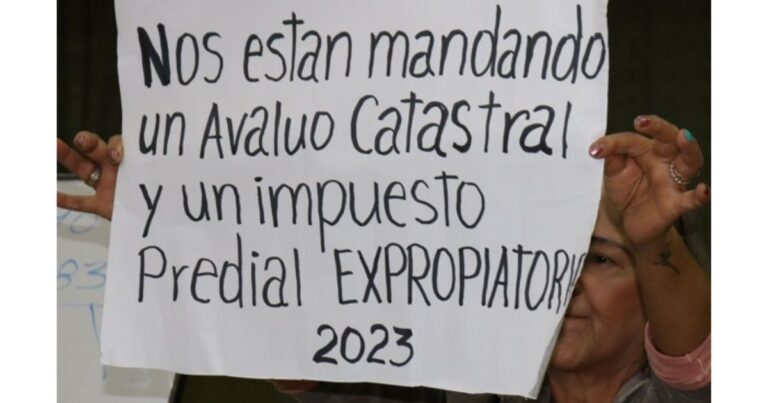 Nos estan mandando
un Avaluo Catastral
y un impuesto
Predial EXPROPIATORIA
2023
83